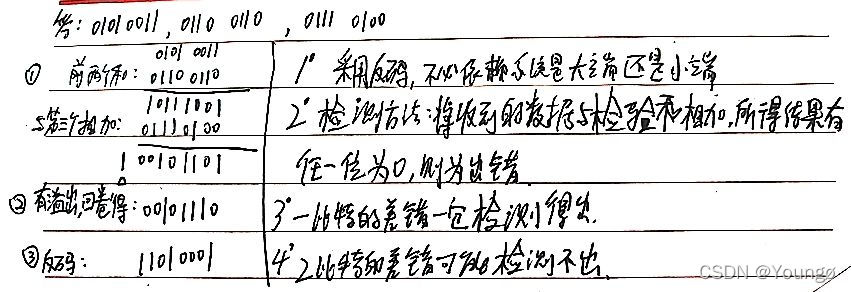 答: 01010011, 0110 0110 , 0111 0100
① 前两个和: 0101 0011
0110 0110
10111001
与第三个相加: 01110100
1 00101101
② 有溢出,回卷得: 00101110
③ 反码: 11010001
1° 采用反码, 不必依赖系统是大端还是小端
2° 检测方法: 将收到的数据与检验和相加, 所得结果有
任一位为0, 则为出错.
3° 一比特的差错一定检测得出.
4° 2比特的差错可能检测不出.
CSDN @Youngø